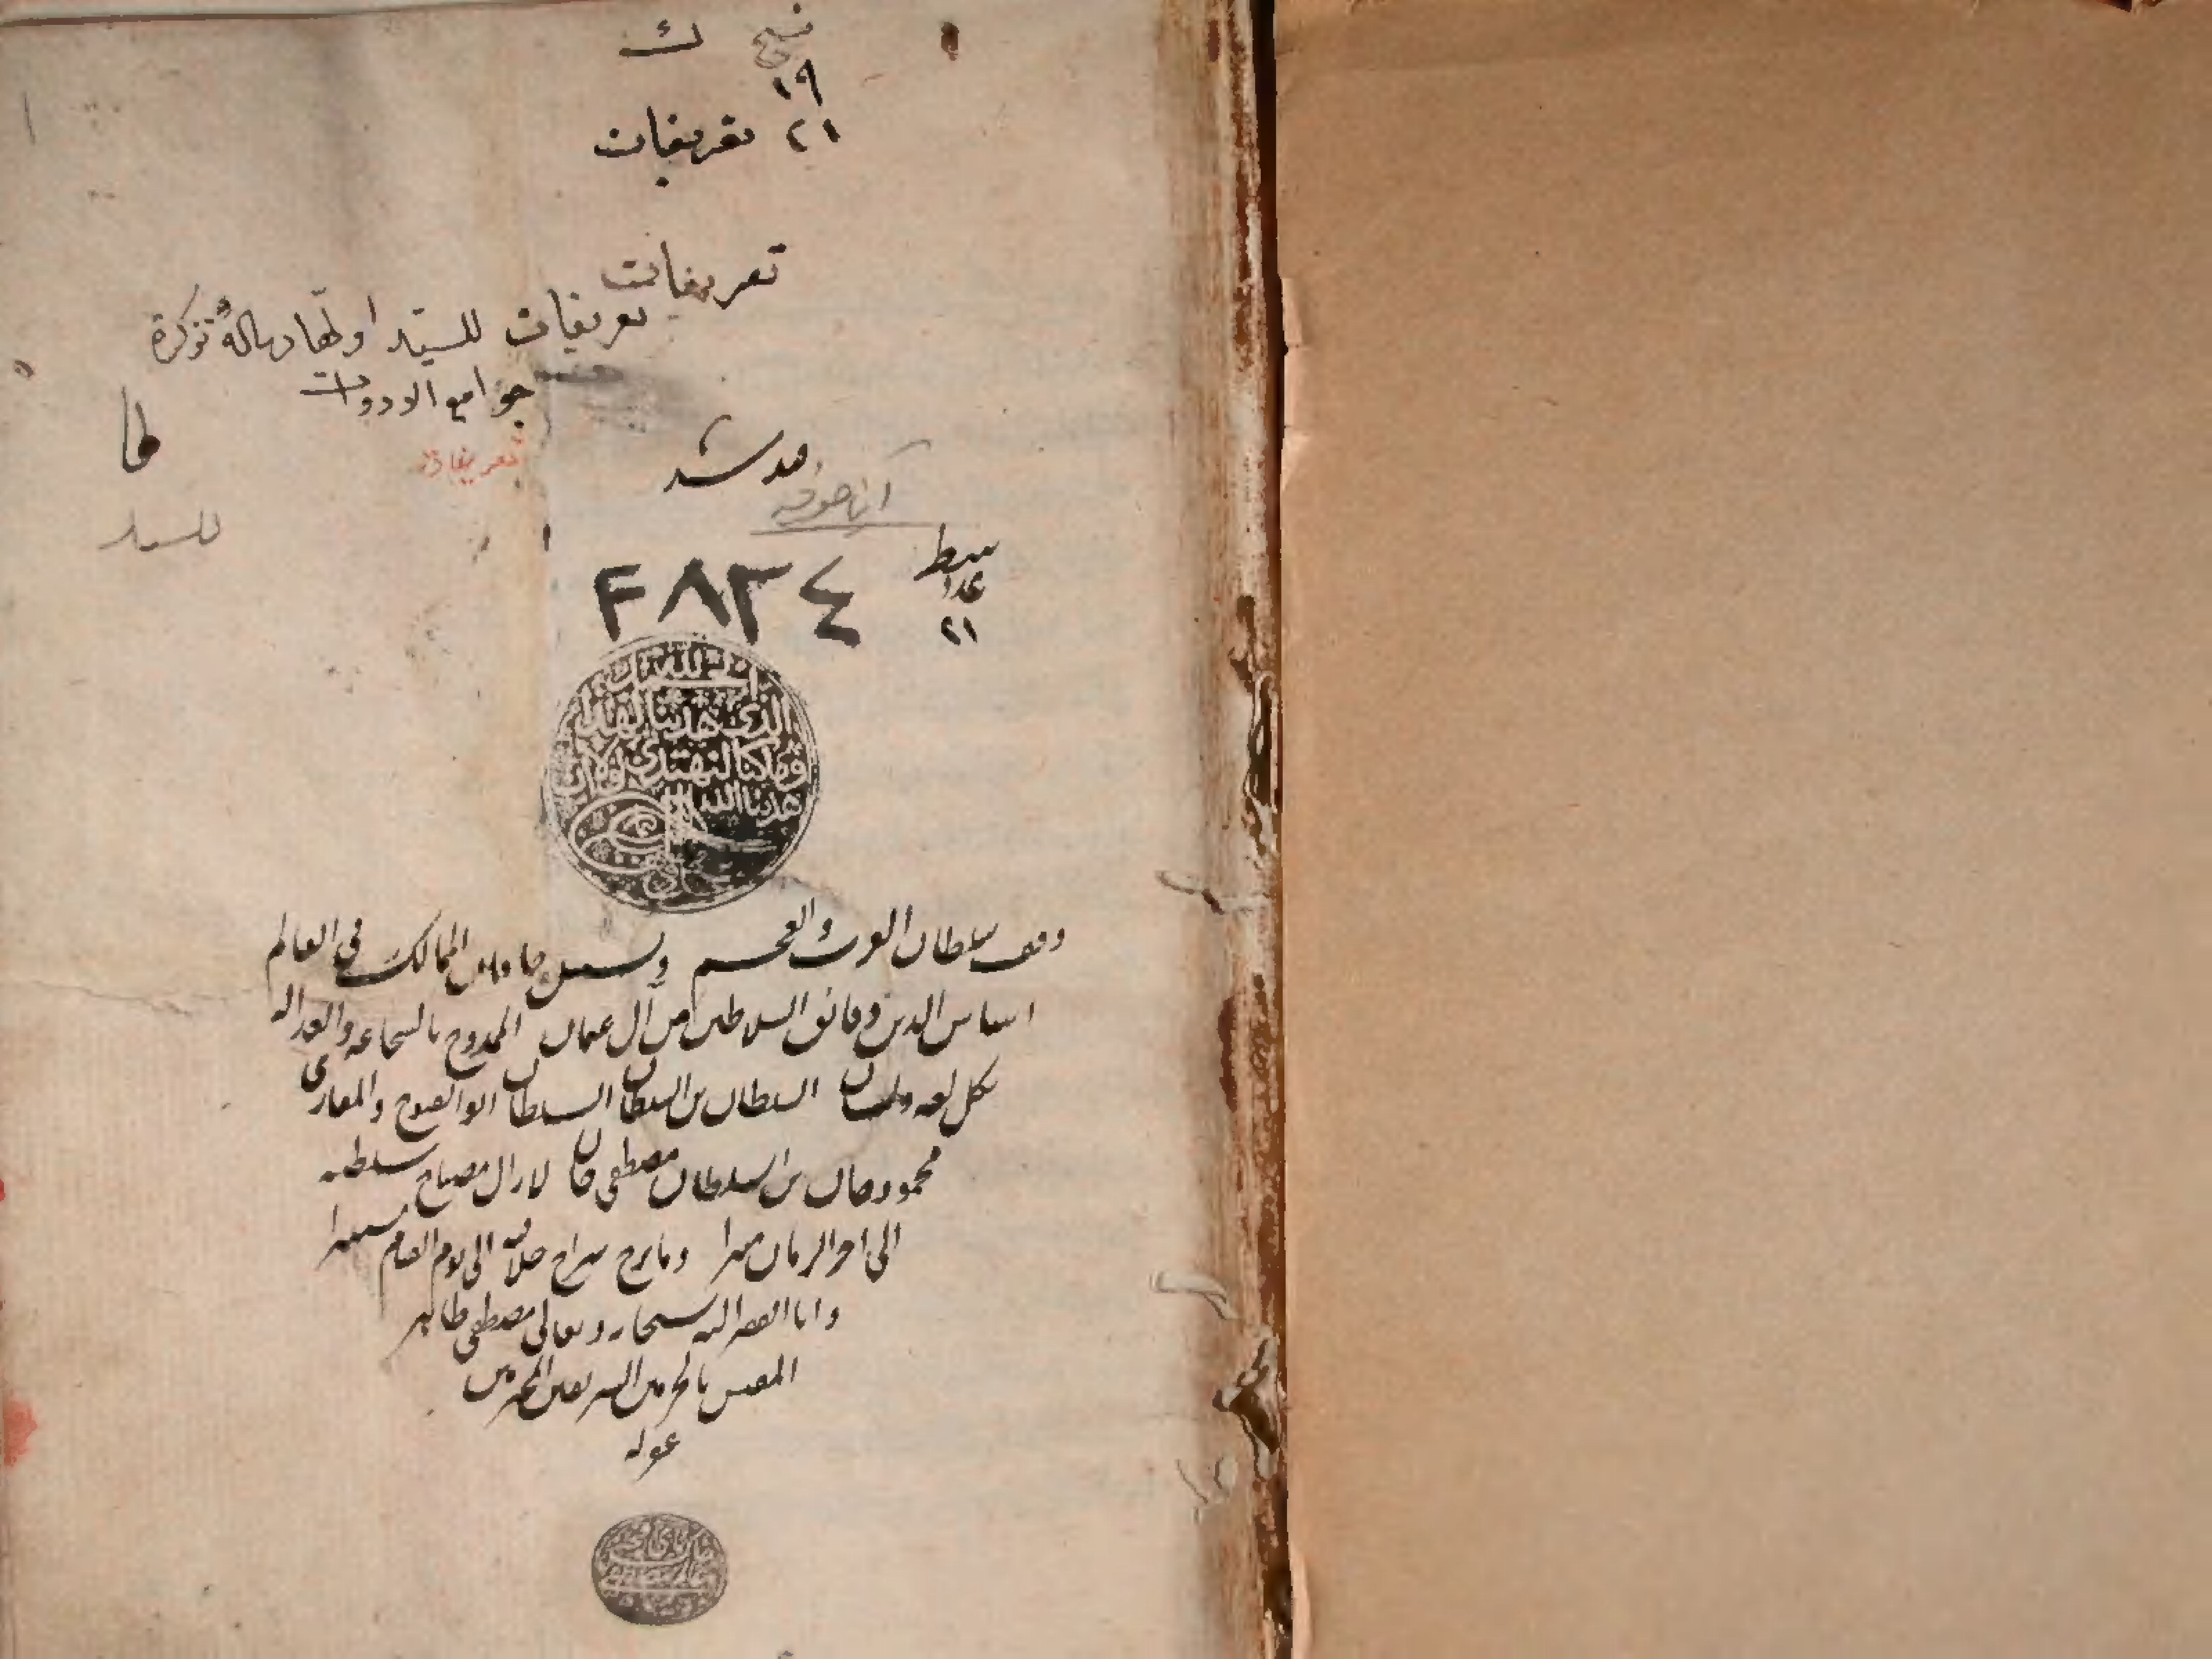 ١٩
٢١ تعريفات
تعريفات
تعريفات للسيّد اولها رسالة تذكرة
جوامع الادوات
تعريفات
للسيد
سطر
عدد
٢١
٤٨٣٤
الحمد لله
الذي هدينا لهذا
وما كنا لنهتدي لولا ان
هدينا الله
وقف سلطان العرب والعجم خاقان الممالك في العالم
اساس الدين وفائق السلاطين من آل عثمان الممدوح بالشجاعة والعدالة
بكل لغة ولسان السلطان بن السلطان السلطان ابو الفتوح والمغازى
محمود خان بن السلطان مصطفى خان لازال مصباح سلطنته
الى اخر الزمان منيرا وما برح سراج جلاله الى يوم القيام مستنيرا
وانا الفقير اليه سبحانه وتعالى مصطفى طاهر
المفتش بالحرمين الشريفين المحترمين
غفر له